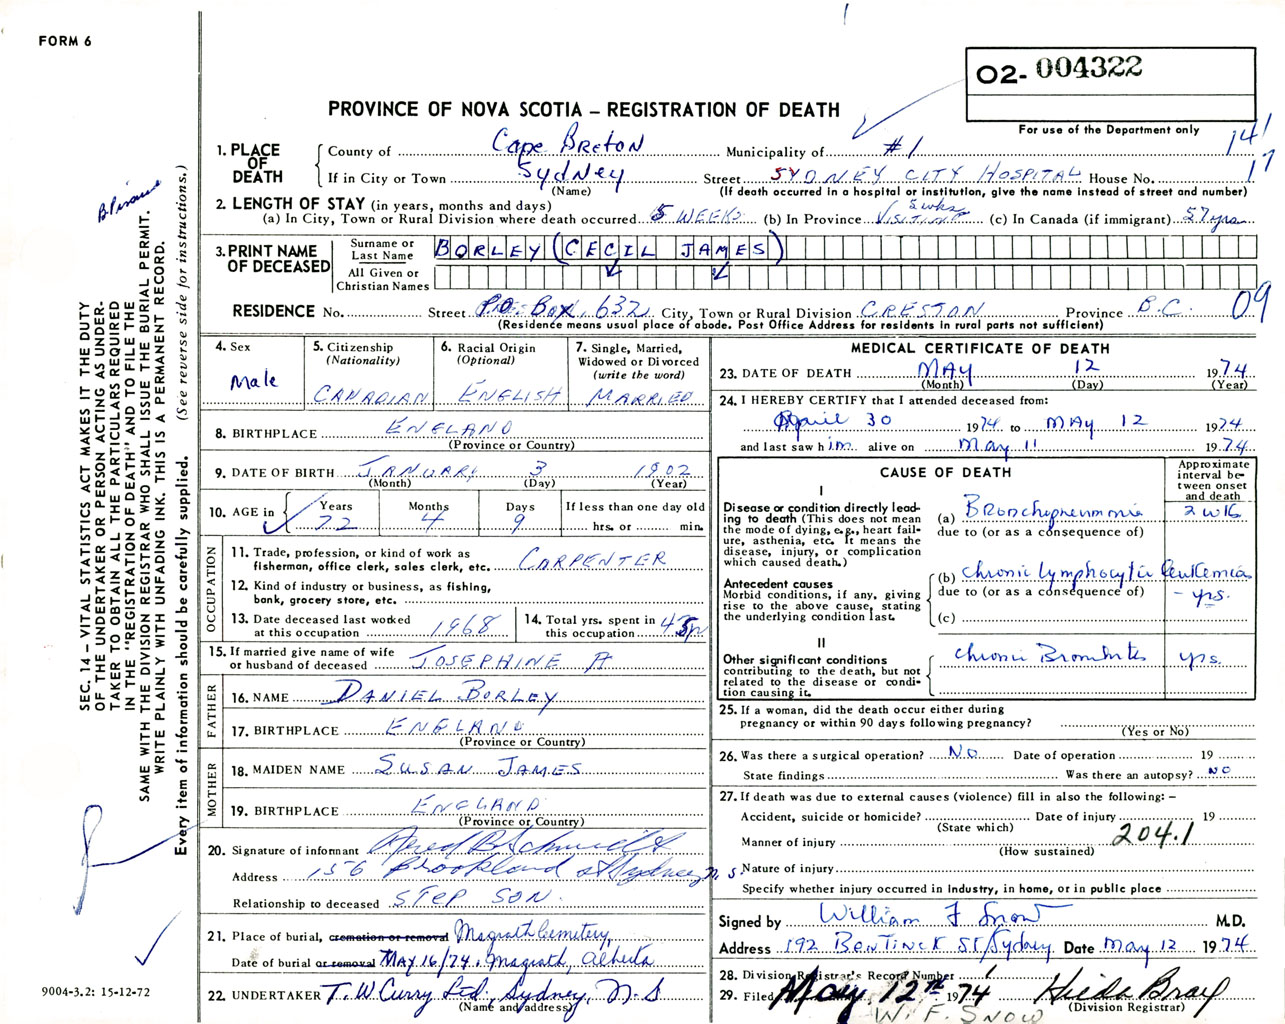 FORM 6
02- 004322
For use of the Department only
PROVINCE OF NOVA SCOTIA – REGISTRATION OF DEATH
141
17
1. PLACE OF DEATH
County of Cape Breton Municipality of #1
If in City or Town Sydney Street SYDNEY CITY HOSPITAL House No.
(Name) (If death occurred in a hospital or institution, give the name instead of street and number)
2. LENGTH OF STAY (in years, months and days)
5 wks
(a) In City, Town or Rural Division where death occurred 5 WEEKS (b) In Province VISITING (c) In Canada (if immigrant) 57 yrs
3. PRINT NAME OF DECEASED
Surname or Last Name BORLEY (CECIL JAMES)
All Given or Christian Names
RESIDENCE No. Street P.O. Box 632 City, Town or Rural Division CRESTON Province B.C. 09
(Residence means usual place of abode. Post Office Address for residents in rural parts not sufficient)
4. Sex Male
5. Citizenship (Nationality) CANADIAN
6. Racial Origin (Optional) ENGLISH
7. Single, Married, Widowed or Divorced (write the word) MARRIED
8. BIRTHPLACE ENGLAND
(Province or Country)
9. DATE OF BIRTH JANUARY 3 1902
(Month) (Day) (Year)
10. AGE in Years Months Days If less than one day old
72 4 9 hrs. or min.
OCCUPATION
11. Trade, profession, or kind of work as fisherman, office clerk, sales clerk, etc. CARPENTER
12. Kind of industry or business, as fishing, bank, grocery store, etc.
13. Date deceased last worked at this occupation 1968
14. Total yrs. spent in this occupation 45 yr
15. If married give name of wife or husband of deceased JOSEPHINE A
FATHER
16. NAME DANIEL BORLEY
17. BIRTHPLACE ENGLAND
(Province or Country)
MOTHER
18. MAIDEN NAME SUSAN JAMES
19. BIRTHPLACE ENGLAND
(Province or Country)
20. Signature of informant
Address 156 Brookland St Sydney N S
Relationship to deceased STEP SON.
21. Place of burial, cremation or removal Magrath Cemetery,
Date of burial or removal MAY 16/74. Magrath, Alberta
22. UNDERTAKER T. W Curry Ltd., Sydney, N. S
(Name and address)
MEDICAL CERTIFICATE OF DEATH
23. DATE OF DEATH MAY 12 1974
(Month) (Day) (Year)
24. I HEREBY CERTIFY that I attended deceased from:
April 30 1974 to MAY 12 1974
and last saw him alive on May 11 1974
CAUSE OF DEATH
Approximate interval between onset and death
I
Disease or condition directly leading to death (This does not mean the mode of dying, e.g., heart failure, asthenia, etc. It means the disease, injury, or complication which caused death.)
(a) Bronchopneumonia 2 wk
due to (or as a consequence of)
Antecedent causes
Morbid conditions, if any, giving rise to the above cause, stating the underlying condition last.
(b) Chronic lymphocytic leukemia
due to (or as a consequence of) - yrs.
(c)
II
Other significant conditions contributing to the death, but not related to the disease or condition causing it.
Chronic Bronchitis yrs.
25. If a woman, did the death occur either during pregnancy or within 90 days following pregnancy?
(Yes or No)
26. Was there a surgical operation? NO Date of operation 19
State findings Was there an autopsy? NO
27. If death was due to external causes (violence) fill in also the following: –
Accident, suicide or homicide? Date of injury 19
(State which)
Manner of injury 204.1
(How sustained)
Nature of injury
Specify whether injury occurred in Industry, in home, or in public place
Signed by William F Snow M.D.
Address 192 BENTINCK St, Sydney Date May 12 1974
28. Division Registrar's Record Number 1
29. Filed May 12th 1974 Hilda Bray
(Division Registrar)
W. F. SNOW
SEC. 14 – VITAL STATISTICS ACT MAKES IT THE DUTY
OF THE UNDERTAKER OR PERSON ACTING AS UNDER-
TAKER TO OBTAIN ALL THE PARTICULARS REQUIRED
IN THE "REGISTRATION OF DEATH" AND TO FILE THE
SAME WITH THE DIVISION REGISTRAR WHO SHALL ISSUE THE BURIAL PERMIT.
WRITE PLAINLY WITH UNFADING INK. THIS IS A PERMANENT RECORD.
Every item of information should be carefully supplied. (See reverse side for instructions.)
9004-3.2: 15-12-72